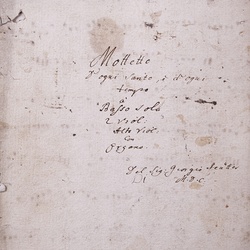 Mottetto
D'ogni Santo, e d'ogni
tempo
a
Basso solo
2 Viol:
Alto Viol:
Con
Organo
Del Sig Giorgio